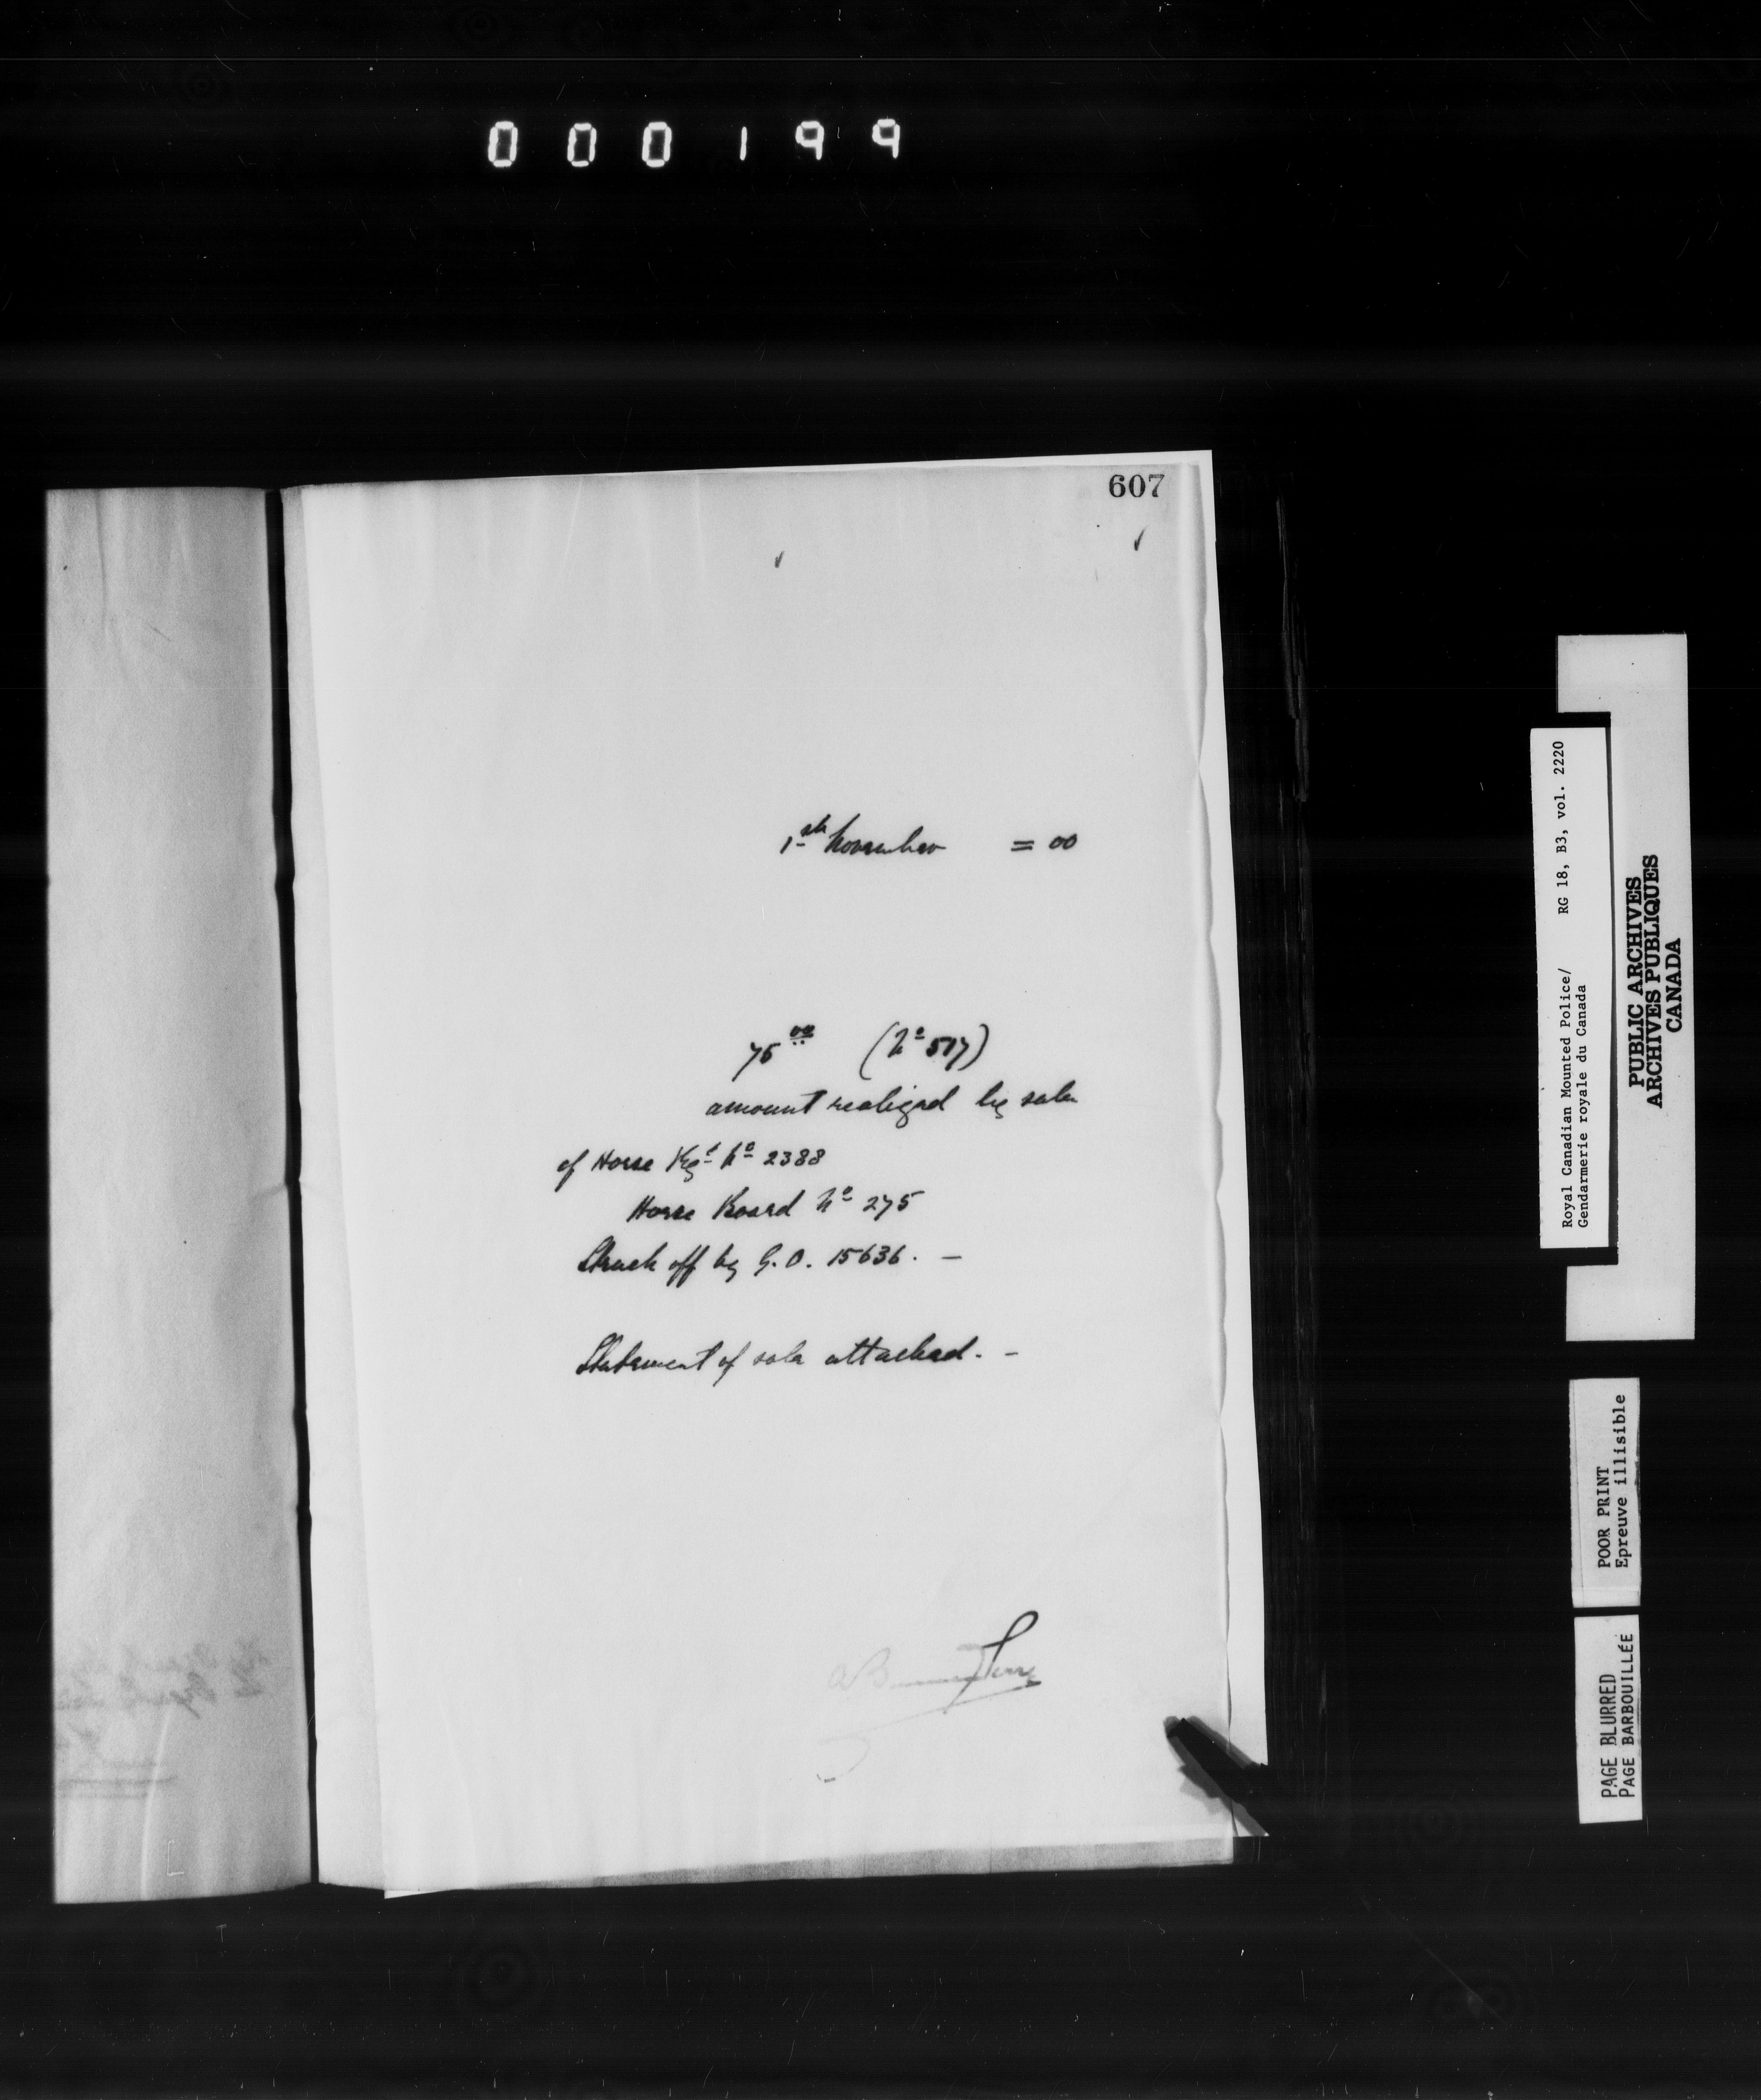 000199
607
1st November = 00
75 00 (No 517)
amount realized by sale
of Horse Regl No 2388
Horse Board No 275
Struck off by G.O. 15636. —
Statement of sale attached. —
Royal Canadian Mounted Police/ RG 18, B3, vol. 2220
Gendarmerie royale du Canada
PUBLIC ARCHIVES
ARCHIVES PUBLIQUES
CANADA
POOR PRINT
Epreuve illisible
PAGE BLURRED
PAGE BARBOUILLÉE